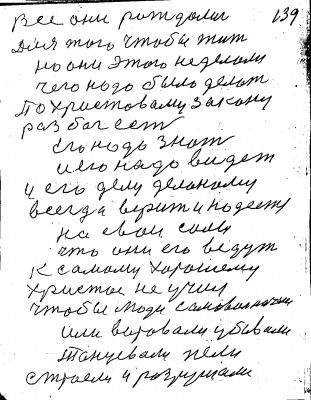 139
Все они рождали
Для того чтобы жит
но они этого неделали
чего надо было делат
По христовому закону
раз бог ест
Его надо знат
и его надо видет
и его делу делоному
всегда верит и надеетя
на свои силы
что они его ведут
к самому хорошему
христос не учил
чтобы люди самовольничи
или воровали убивали
танцевали пели
строели и разрушали